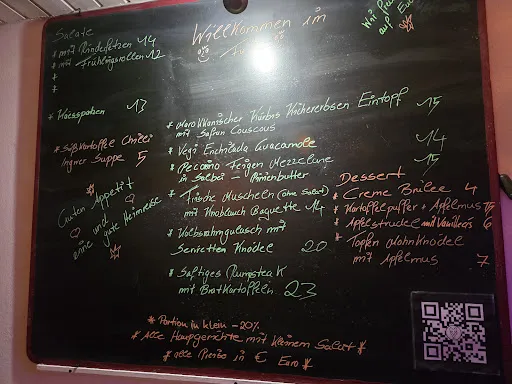 Salate
* mit Rindsfetzen 14
* mit Frühlingsrollen 12
*
*
* Kässpatzen 13
* Süßkartoffel Chili
Ingwer Suppe 5
* Guten Appetit
und
eine gute Heimreise
Willkommen im
* Marokkanischer Kürbis Kichererbsen Eintopf 15
mit Safran Couscous
* Vegi Enchilada Guacamole 14
* Pecorino Feigen Mezzelune 15
in Salbei – Pinienbutter
* Frische Muscheln (ohne Salat)
mit Knoblauch Baguette 14
* Kalbsrahmgulasch mit
Servietten Knödel 20
* Saftiges Rumpsteak
mit Bratkartoffeln 23
Dessert
* Creme Brûlee 4
* Kartoffelpuffer + Apfelmus
* Apfelstrudel mit Vanilleis 6
* Topfen Mohnknödel
mit Apfelmus 7
* Portion in klein – 20%
* Alle Hauptgerichte mit kleinem Salat *
* alle Preise in € Euro *